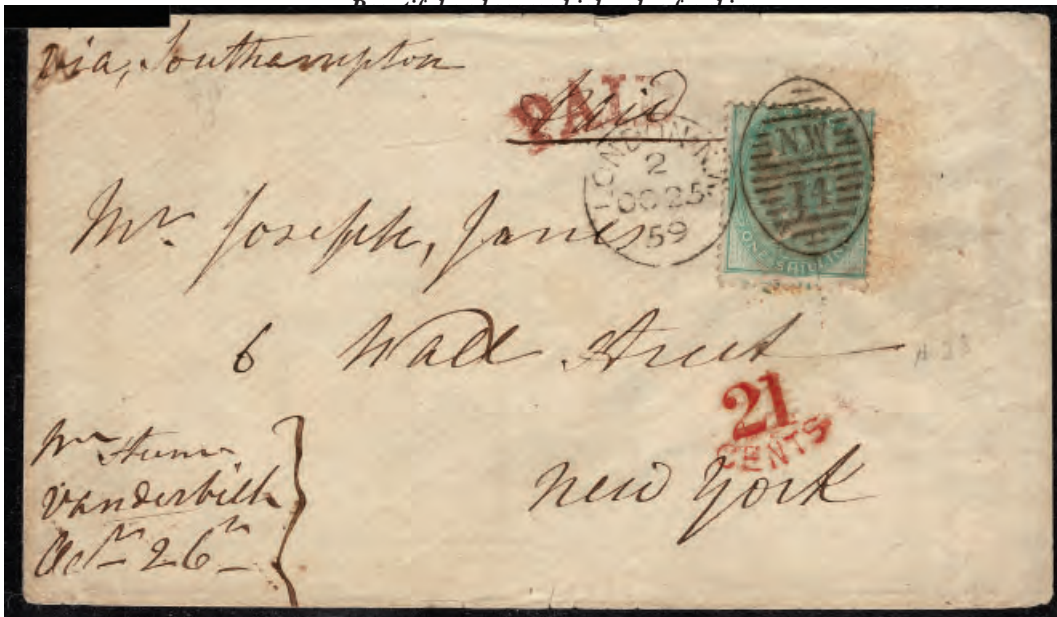 via, Southampton
PAID
Paid
LONDON N.W
2
OC 25
59
NW
14
ONE SHILLING
Mr. Joseph, Jones
6 Wall Street
21
CENTS
pr Steamr
Vanderbilt
Octr 26th
New York